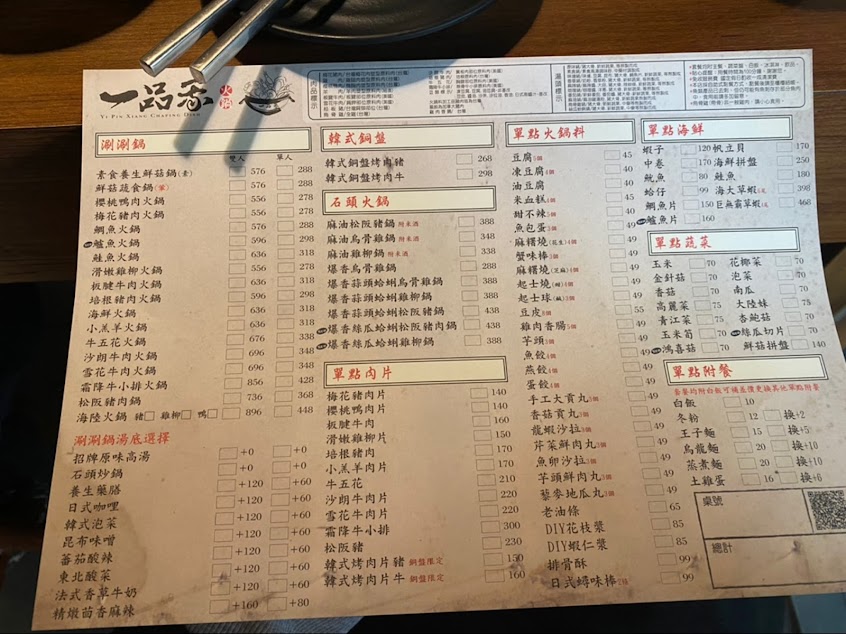 一品香 火鍋
YI PIN XIANG CHAFING DISH
涮涮鍋
雙人 單人
素食養生鮮菇鍋(素) 576 288
鮮菇蔬食鍋(葷) 576 288
櫻桃鴨肉火鍋 556 278
梅花豬肉火鍋 556 278
鯛魚火鍋 576 288
鱸魚火鍋 596 298
鮭魚火鍋 636 318
滑嫩雞柳火鍋 556 278
板腱牛肉火鍋 636 318
培根豬肉火鍋 596 298
海鮮火鍋 636 318
小羔羊火鍋 636 318
牛五花火鍋 676 338
沙朗牛肉火鍋 696 348
雪花牛肉火鍋 696 348
霜降牛小排火鍋 856 428
松阪豬肉鍋 736 368
海陸火鍋 豬 雞柳 鴨 896 448
涮涮鍋湯底選擇
招牌原味高湯 +0 +0
石頭炒鍋 +0 +0
養生藥膳 +120 +60
日式咖哩 +120 +60
韓式泡菜 +120 +60
昆布味噌 +120 +60
蕃茄酸辣 +120 +60
東北酸菜 +120 +60
法式香草牛奶 +120 +60
精燉茴香麻辣 +160 +80
韓式銅盤
韓式銅盤烤肉豬 268
韓式銅盤烤肉牛 298
石頭火鍋
麻油松阪豬鍋 附米酒 388
麻油烏骨雞鍋 附米酒 348
麻油雞柳鍋 附米酒 338
爆香烏骨雞鍋 288
爆香蒜頭蛤蜊烏骨雞鍋 388
爆香蒜頭蛤蜊雞柳鍋 388
爆香蒜頭蛤蜊松阪豬鍋 438
爆香絲瓜蛤蜊松阪豬肉鍋 438
爆香絲瓜蛤蜊雞柳鍋 388
單點肉片
梅花豬肉片 140
櫻桃鴨肉片 140
板腱牛肉 160
滑嫩雞柳片 150
培根豬肉 170
小羔羊肉片 170
牛五花 210
沙朗牛肉片 220
雪花牛肉片 220
霜降牛小排 300
松阪豬 230
韓式烤肉片豬 銅盤限定 150
韓式烤肉片牛 銅盤限定 160
單點火鍋料
豆腐5個 45
凍豆腐4個 45
油豆腐 45
米血糕4個 45
甜不辣5個 49
魚包蛋3個 49
麻糬燒(花生)4個 49
蟹味棒3個 49
麻糬燒(芝麻)4個 49
起士燒(甜)4個 49
起士球(鹹)3個 49
豆皮3個 55
雞肉香腸5個 49
芋頭3個 49
魚餃4個 49
燕餃4個 49
蛋餃4個 49
手工大貢丸3個 49
香菇貢丸3個 49
龍蝦沙拉3個 49
芹菜鮮肉丸3個 49
魚卵沙拉3個 49
芋頭鮮肉丸3個 49
藜麥地瓜丸3個 49
老油條 65
DIY花枝漿 85
DIY蝦仁漿 85
排骨酥 99
日式蟳味棒 99
單點海鮮
蝦子 120 帆立貝 170
中卷 170 海鮮拼盤 250
魷魚 80 鮭魚 180
蛤仔 99 海大草蝦 398
鯛魚片 150 巨無霸草蝦 468
鱸魚片 160
單點蔬菜
玉米 70 花椰菜 70
金針菇 70 泡菜 70
香菇 70 南瓜 70
高麗菜 75 大陸妹 75
青江菜 70 杏鮑菇 70
玉米筍 70 絲瓜切片 70
鴻喜菇 70 鮮菇拼盤 140
單點附餐
套餐均附白飯可補差價更換其他單點附餐
白飯 10
冬粉 12 換+2
王子麵 15 換+5
烏龍麵 20 換+10
蒸煮麵 20 換+10
土雞蛋 16 換+6
桌號
總計